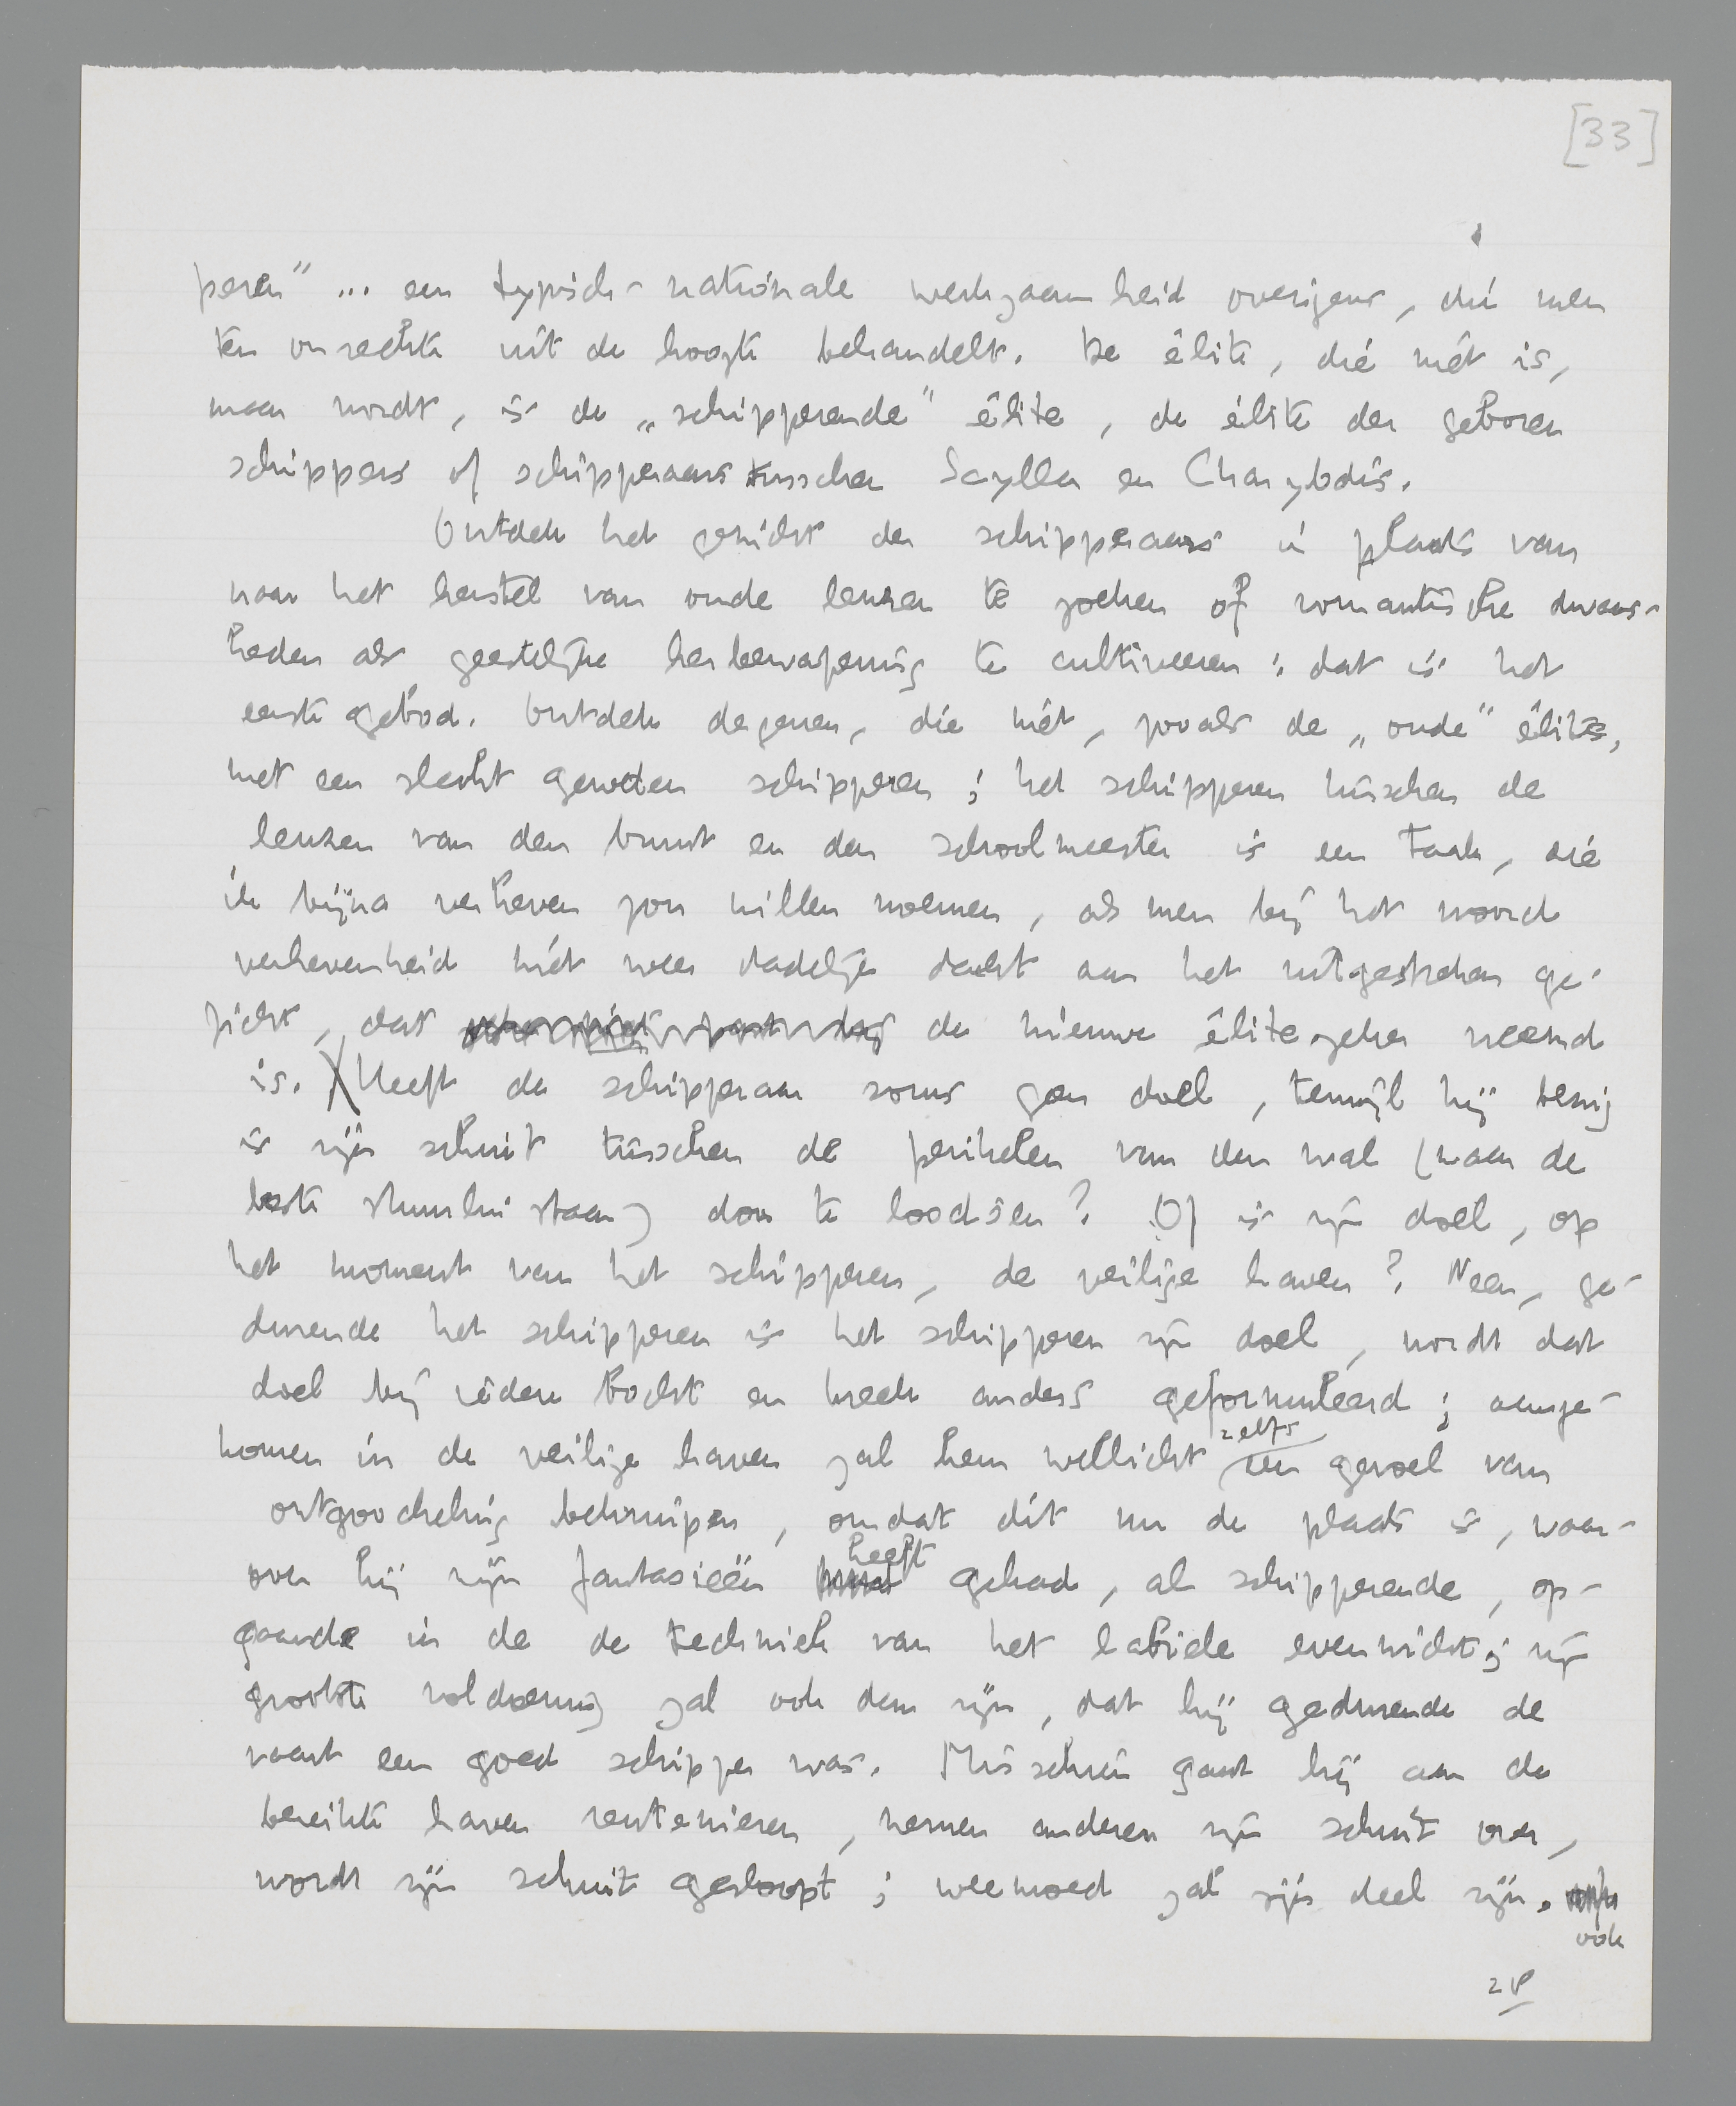 [33]
peren" ... een typisch-nationale werkzaamheid overigens, die men
ten onrechte uit de hoogte behandelt. De élite, die niet is,
maar wordt, is de „schipperende" élite, de élite der geboren
schippers of schipperaars tusschen Scylla en Charybdis.
Ontdek het gezicht der schipperaars in plaats van
naar het herstel van oude leuzen te zoeken of romantische dwaas-
heden als geestelijke herbewapening te cultiveeren: dat is het
eerste gebod. Ontdek degenen, die niet, zooals de „oude" élite,
met een slecht geweten schipperen; het schipperen tusschen de
leuzen van den bruut en den schoolmeester is een taak, die
ik bijna verheven zou willen noemen, als men bij het woord
verhevenheid niet weer dadelijk dacht aan het uitgestreken ge-
zicht, dat de nieuwe élite zeker vreemd
is. Heeft de schipperaar soms geen doel, terwijl hij bezig
is zijn schuit tusschen de perikelen van den wal (waar de
beste stuurlui staan) door te loodsen? Of is zijn doel, op
het moment van het schipperen, de veilige haven? Neen, ge-
durende het schipperen is het schipperen zijn doel, wordt dat
doel bij iedere bocht en kreek anders geformuleerd; aange-
komen in de veilige haven zal hem wellicht zelfs een gevoel van
ontgoocheling bekruipen, omdat dít nu de plaats is, waar-
over hij zijn fantasieën heeft gehad, al schipperende, op-
gaande in de de techniek van het labiele evenwicht; zijn
grootste voldoening zal ook dan zijn, dat hij gedurende de
vaart een goed schipper was. Misschien gaat hij aan de
bereikte haven rentenieren, nemen anderen zijn schuit over,
wordt zijn schuit gesloopt; weemoed zal zijn deel zijn.
ook